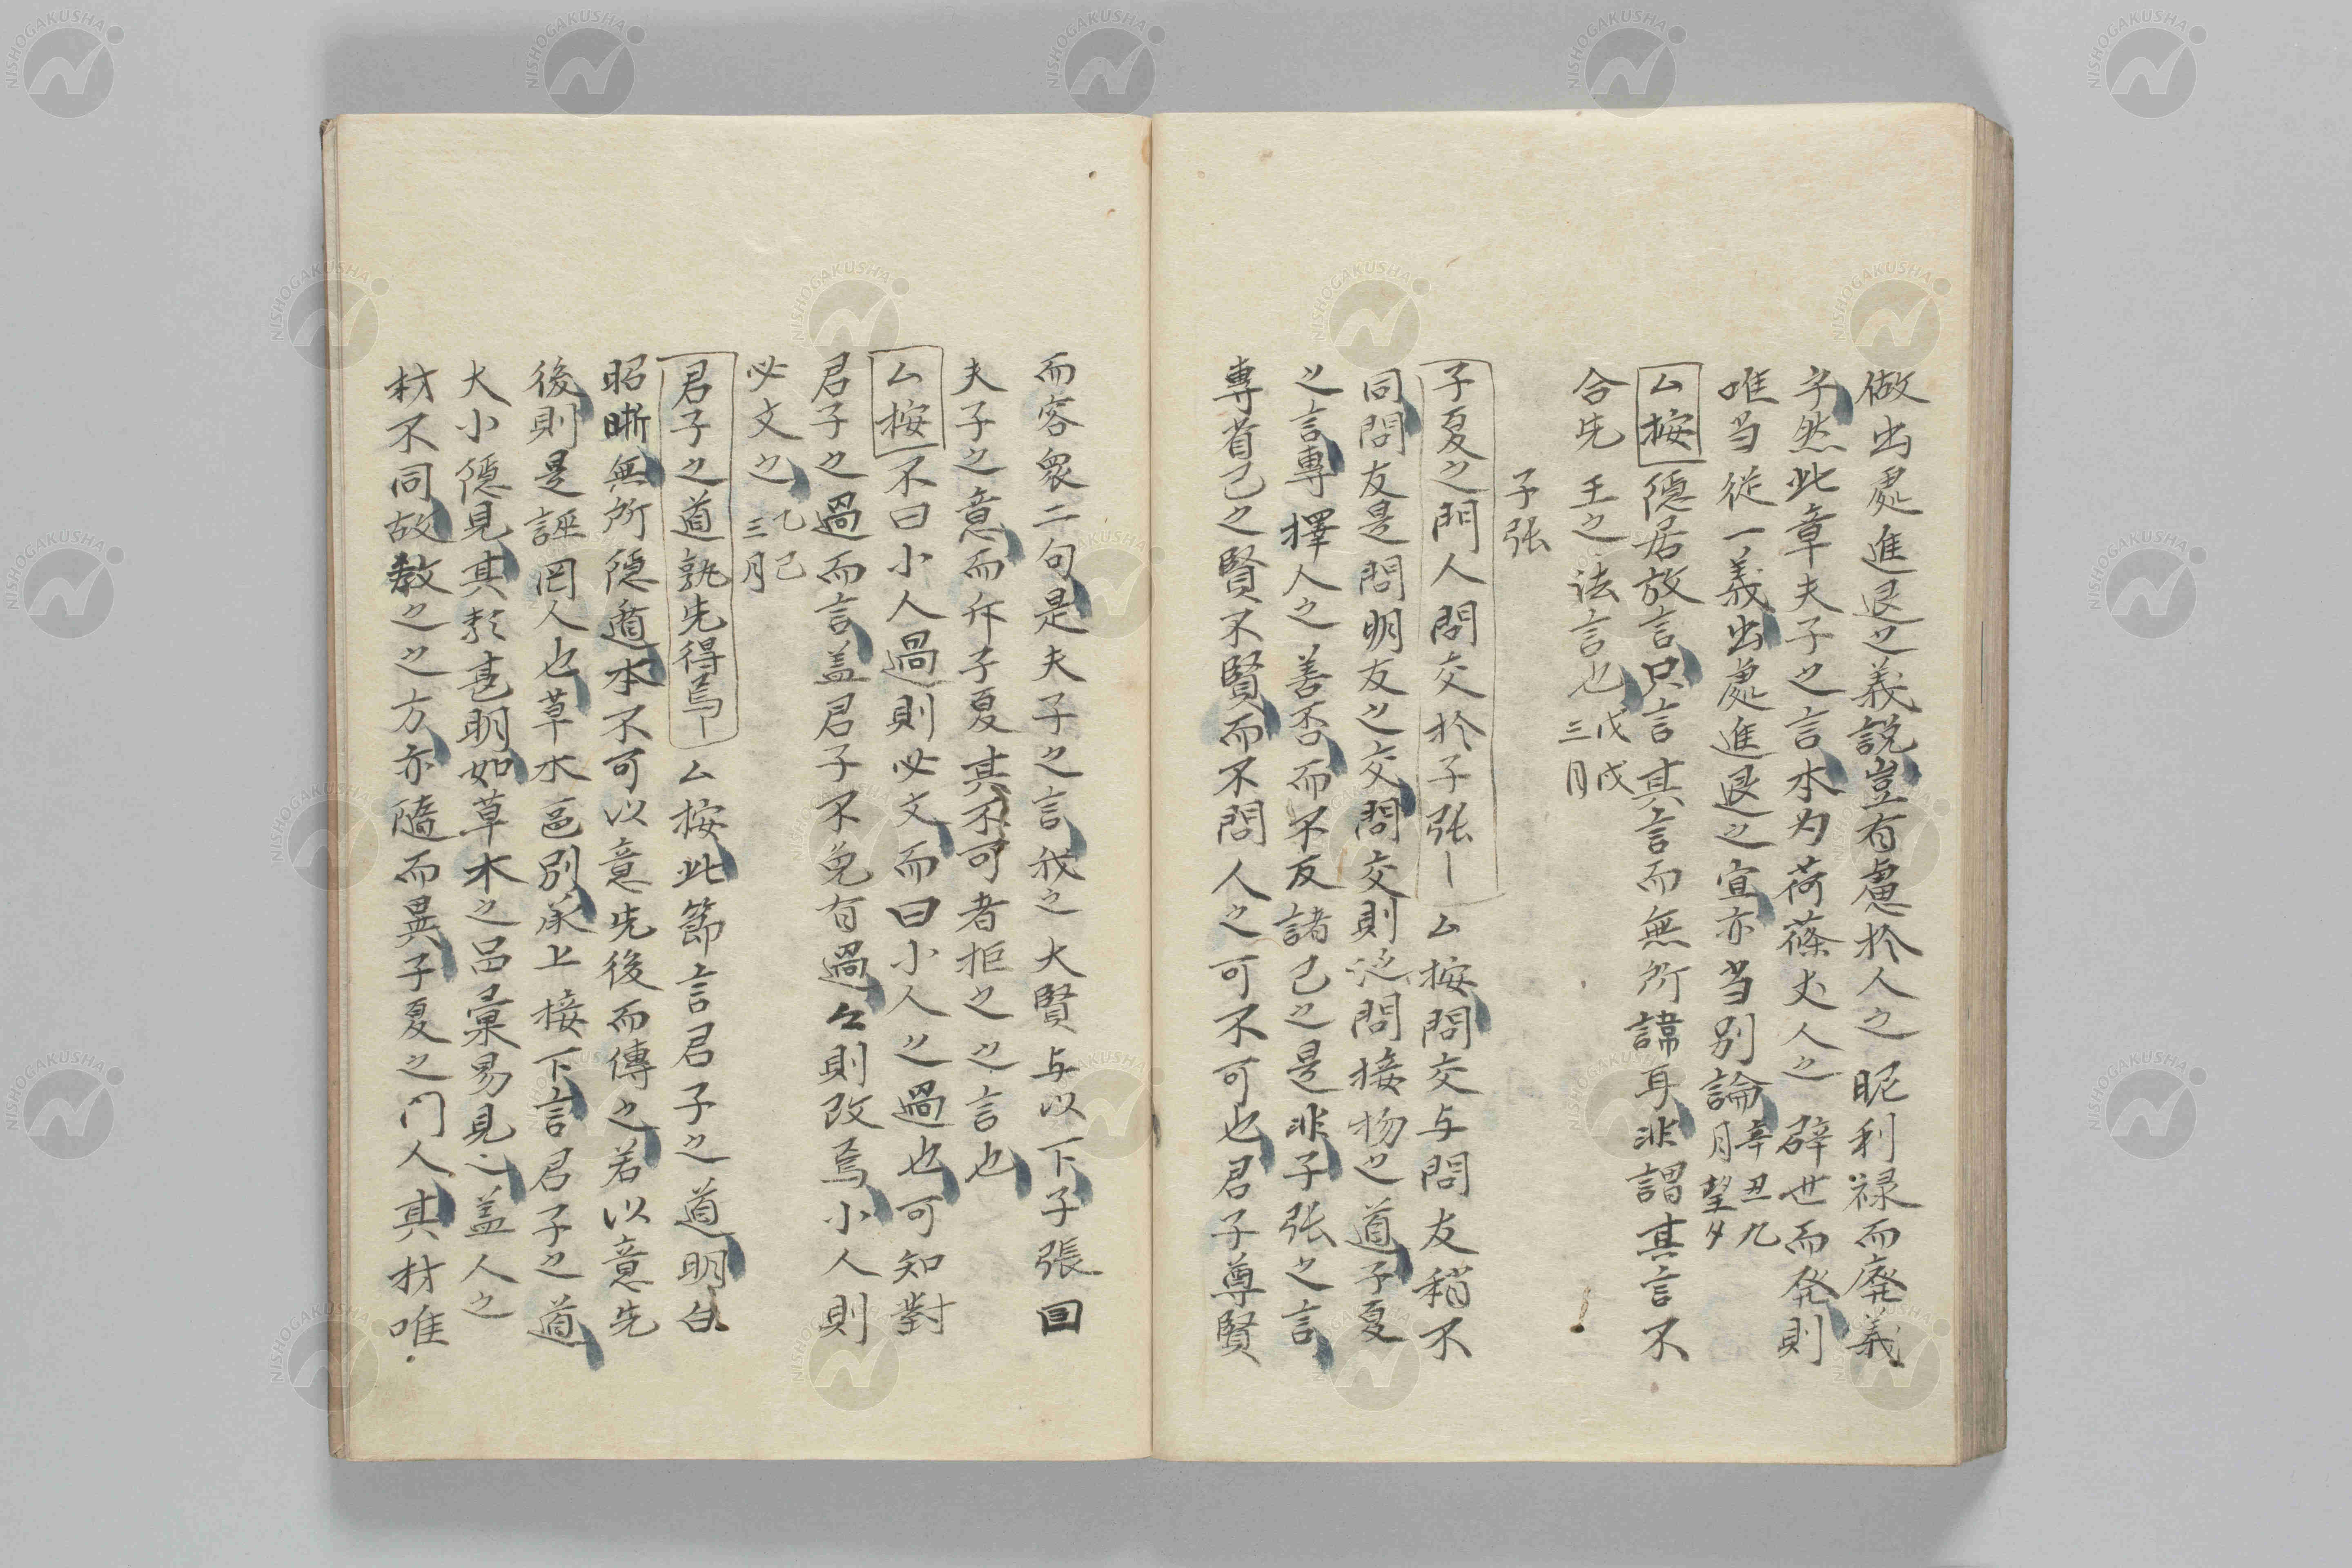 做出處進退之義説豈有慮於人之眤利禄而廃義
乎然此章夫子之言本为荷蓧丈人之辟世而発則
唯当従一義出處進退之宜亦当別論辛丑九月望夕
厶按隠居放言只言其言而無所諱耳非謂其言不
合先王之法言也戊戌三月
子张
子夏之門人問交於子张厶按問交与問友稍不
同問友是問明友之交問交則泛問接物之道子夏
之言專擇人之善否而不反諸己之是非子张之言
專省己之賢不賢而不問人之可不可也君子尊賢
而容衆二句是夫子之言我之大賢与以下子張回
夫子之意而斥子夏其不可者拒之之言也
厶按不曰小人過則必文而曰小人之過也可知對
君子之過而言盖君子不免有過々則改焉小人則
必文之乙巳三月
君子之道孰先得焉厶按此節言君子之道明白
昭晣無所隠遁本不可以意先後而傳之若以意先
後則是誣罔人也草木區別承上接下言君子之道
大小隠見其形甚明如草木之品彙易見之盖人之
材不同故教之之方亦隨而異子夏之门人其材唯
NISHOGAKUSHA